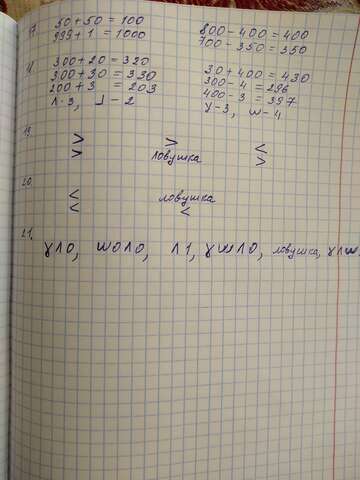 17. 50+50=100 800-400=400
999+1=1000 700-350=350
18. 300+20=320 30+400=430
300+30=330 300-4=296
200+3=203 400-3=397
Л-3, Ј-2 У-3, Ш-4
19. > > <
> ловушка >
20. < ловушка
< <
21. УЛО, ШОЛО, Л1, УШЛО, ловушка, УЛШ